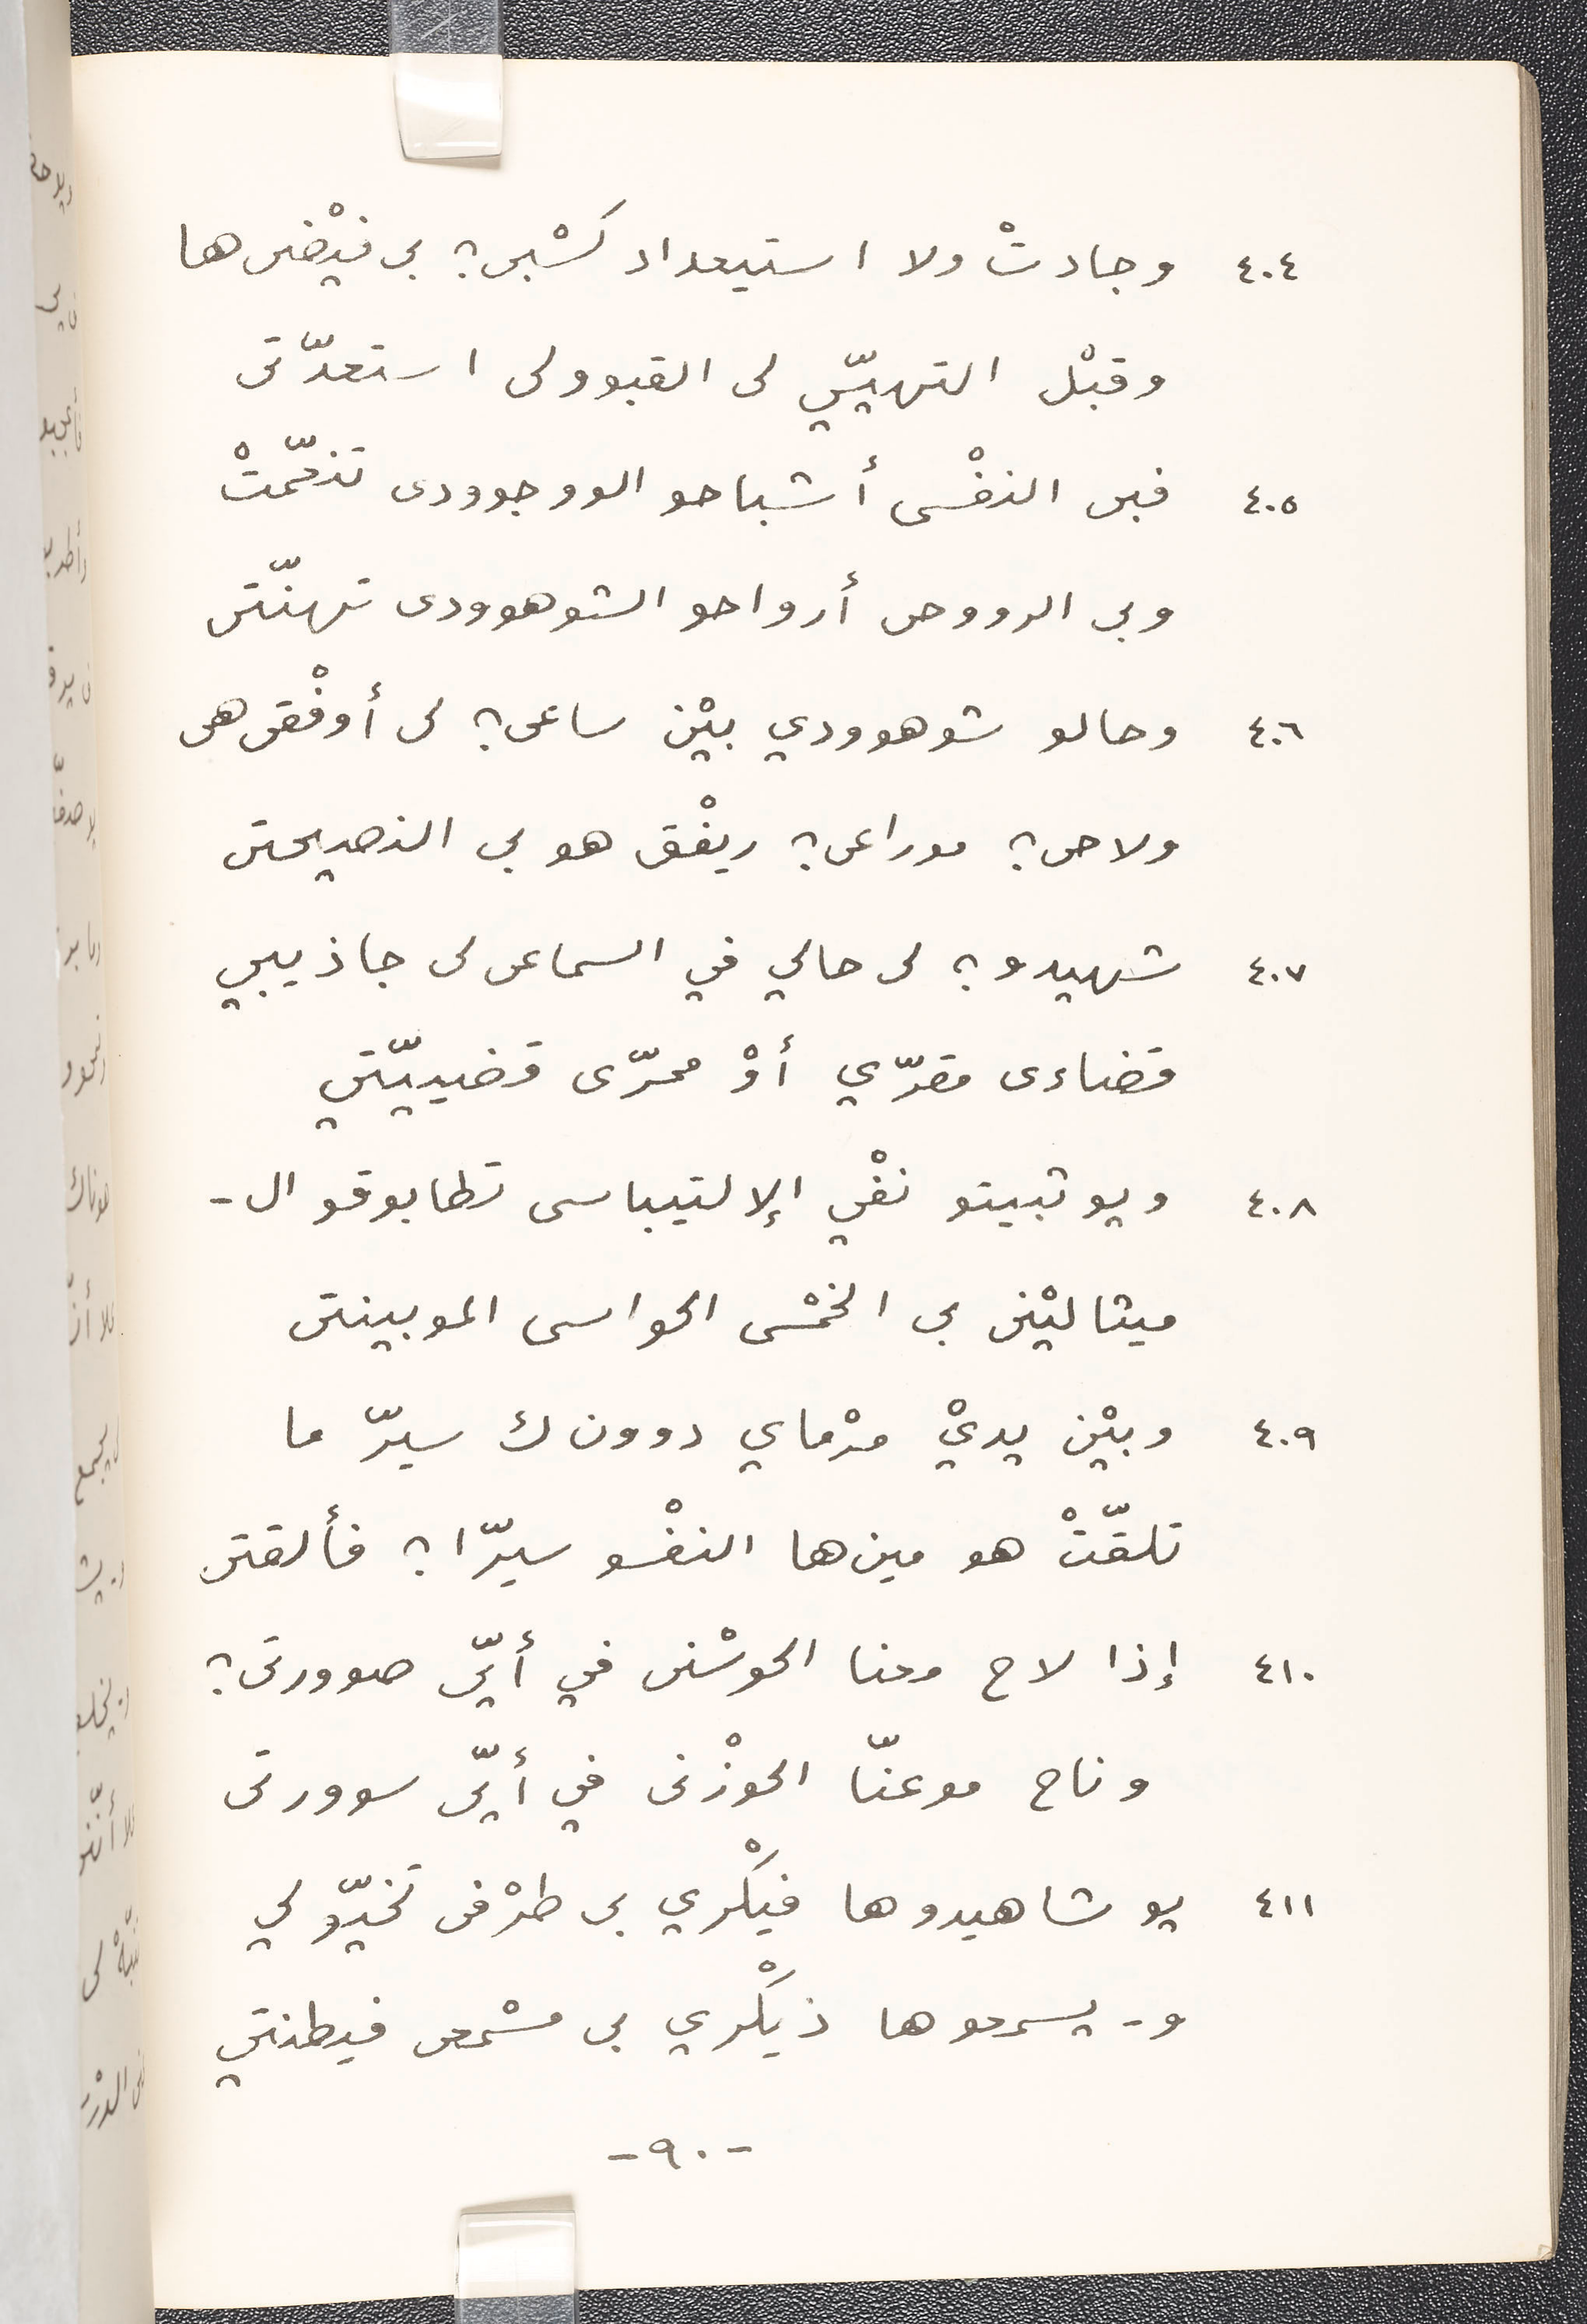 ٤٠٤ وجادتْ ولا استيعداد كَسْبى؟ بى فيْضىها
وقبْل التهيّيي لى القبوولى استعدّتى
٤٠٥ فبى النفْسى أشباحو الووجوودى تنعّمتْ
وبى الرووحى أرواحو الشوهوودى تهنّتى
٤٠٦ وحالو شوهوودي بيْن ساعى؟ لى أوفْقىهى
ولاحى؟ موراعى؟ ريفْقهو بى النصيحتى
٤٠٧ شهيدو؟ لى حالي في السماعى لى جاذيبي
قضاءى مقرّي أوْ ممرّى قضييّتي
٤٠٨ ويوثبيتو نفْي إلالتيباسى تطابوقو ال-
ميثاليْنى بى الخمْسى الحواسى الموبينتى
٤٠٩ وبيْن يديْي مرْماي دوونك سيرّ ما
تلقّتْهو مينها النفْسو سيرّا؟ فألقتى
٤١٠ إذا لاح معنا الحوسْنى في أيّى صوورتى؟
وناح موعنّا الحوزْنى في أيّى سوورتى
٤١١ يوشاهيدوها فيكْري بى طرْفى تخيّولي
و-يسمعوها ذيكْري بى مسْمعى فيطنتي
-٩٠-